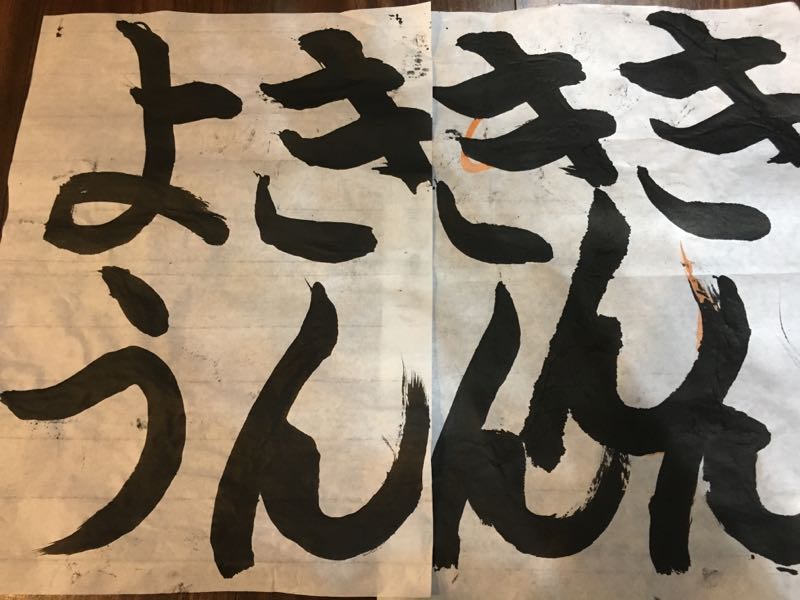 きん
ん
きん
きん
よう